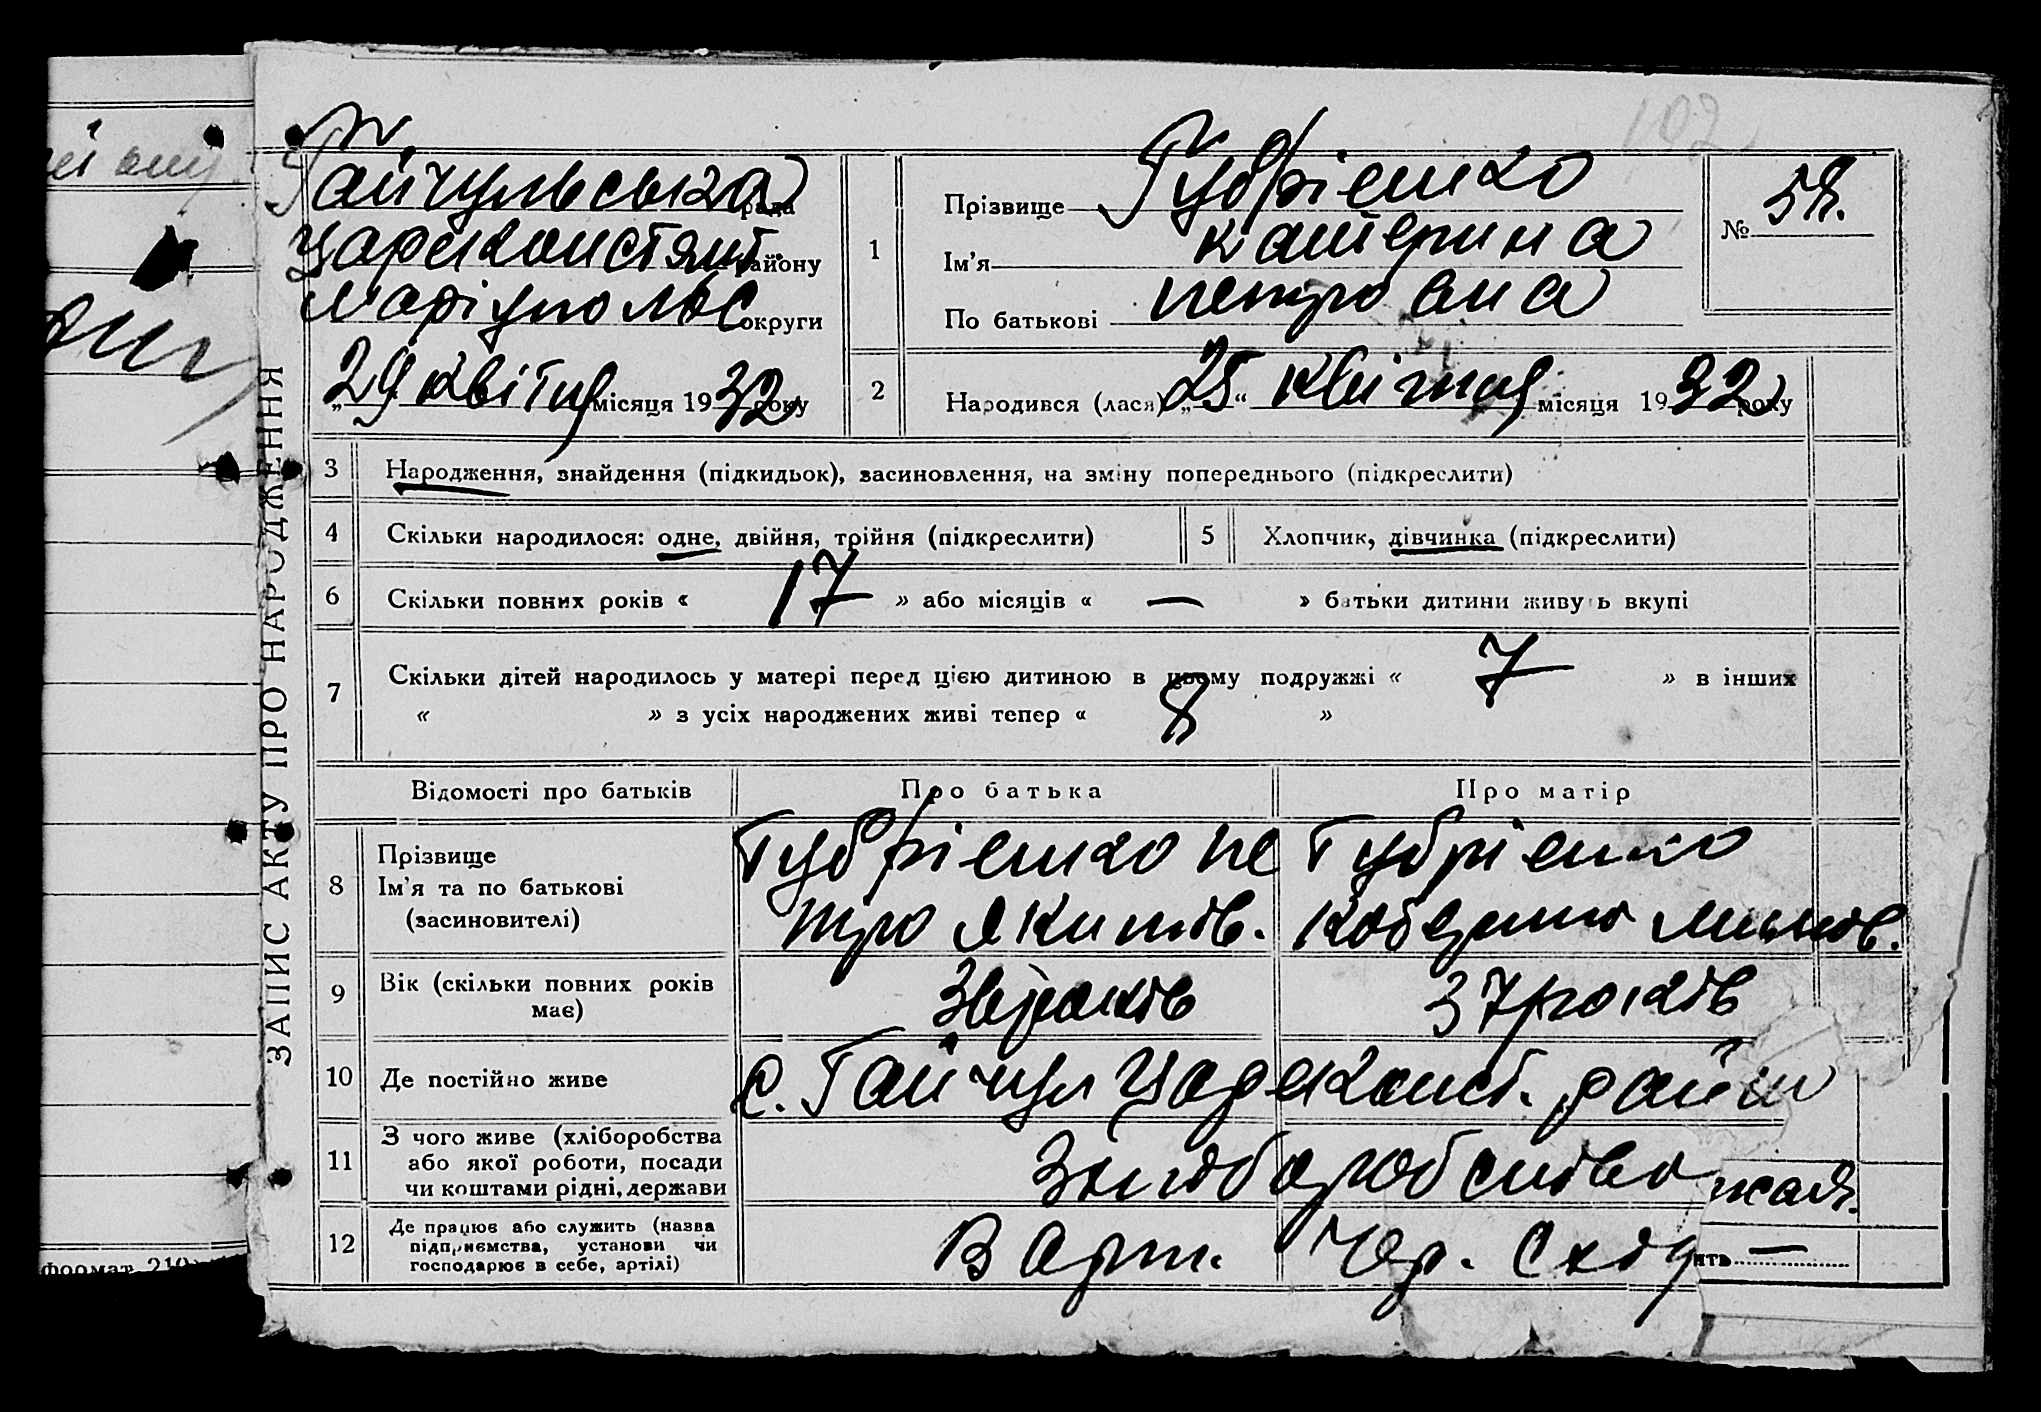 102
Гайчульська рада
Царекостянт. району
Маріупольс округи
„29 квітня місяця 1932 року
1
Прізвище Губрієнко
Ім'я Катерина
По батькові Петровна
№ 58.
2
Народився (лася) „25“ квітня місяця 1932 року
ЗАПИС АКТУ ПРО НАРОДЖЕННЯ
3 Народження, знайдення (підкидьок), засиновлення, на зміну попереднього (підкреслити)
4 Скільки народилося: одне, двійня, трійня (підкреслити) 5 Хлопчик, дівчинка (підкреслити)
6 Скільки повних років « 17 » або місяців « — » батьки дитини живуть вкупі
7 Скільки дітей народилось у матері перед цією дитиною в цьому подружжі « 7 » в інших
« » з усіх народжених живі тепер « 8 »
Відомості про батьків Про батька Про матір
8 Прізвище
Ім'я та по батькові
(засиновителі)
Губрієнко Пе
тро Якипів.
Губрієнко
9 Вік (скільки повних років
має)
років
37 років
10 Де постійно живе с. Гайчул Царекост. район
11 З чого живе (хліборобства
або якої роботи, посади
чи коштами рідні, держави
12 Де працює або служить (назва
підприємства, установи чи
господарює в себе, артілі)
В Арт. Чер. Схід
ить —
формат 210